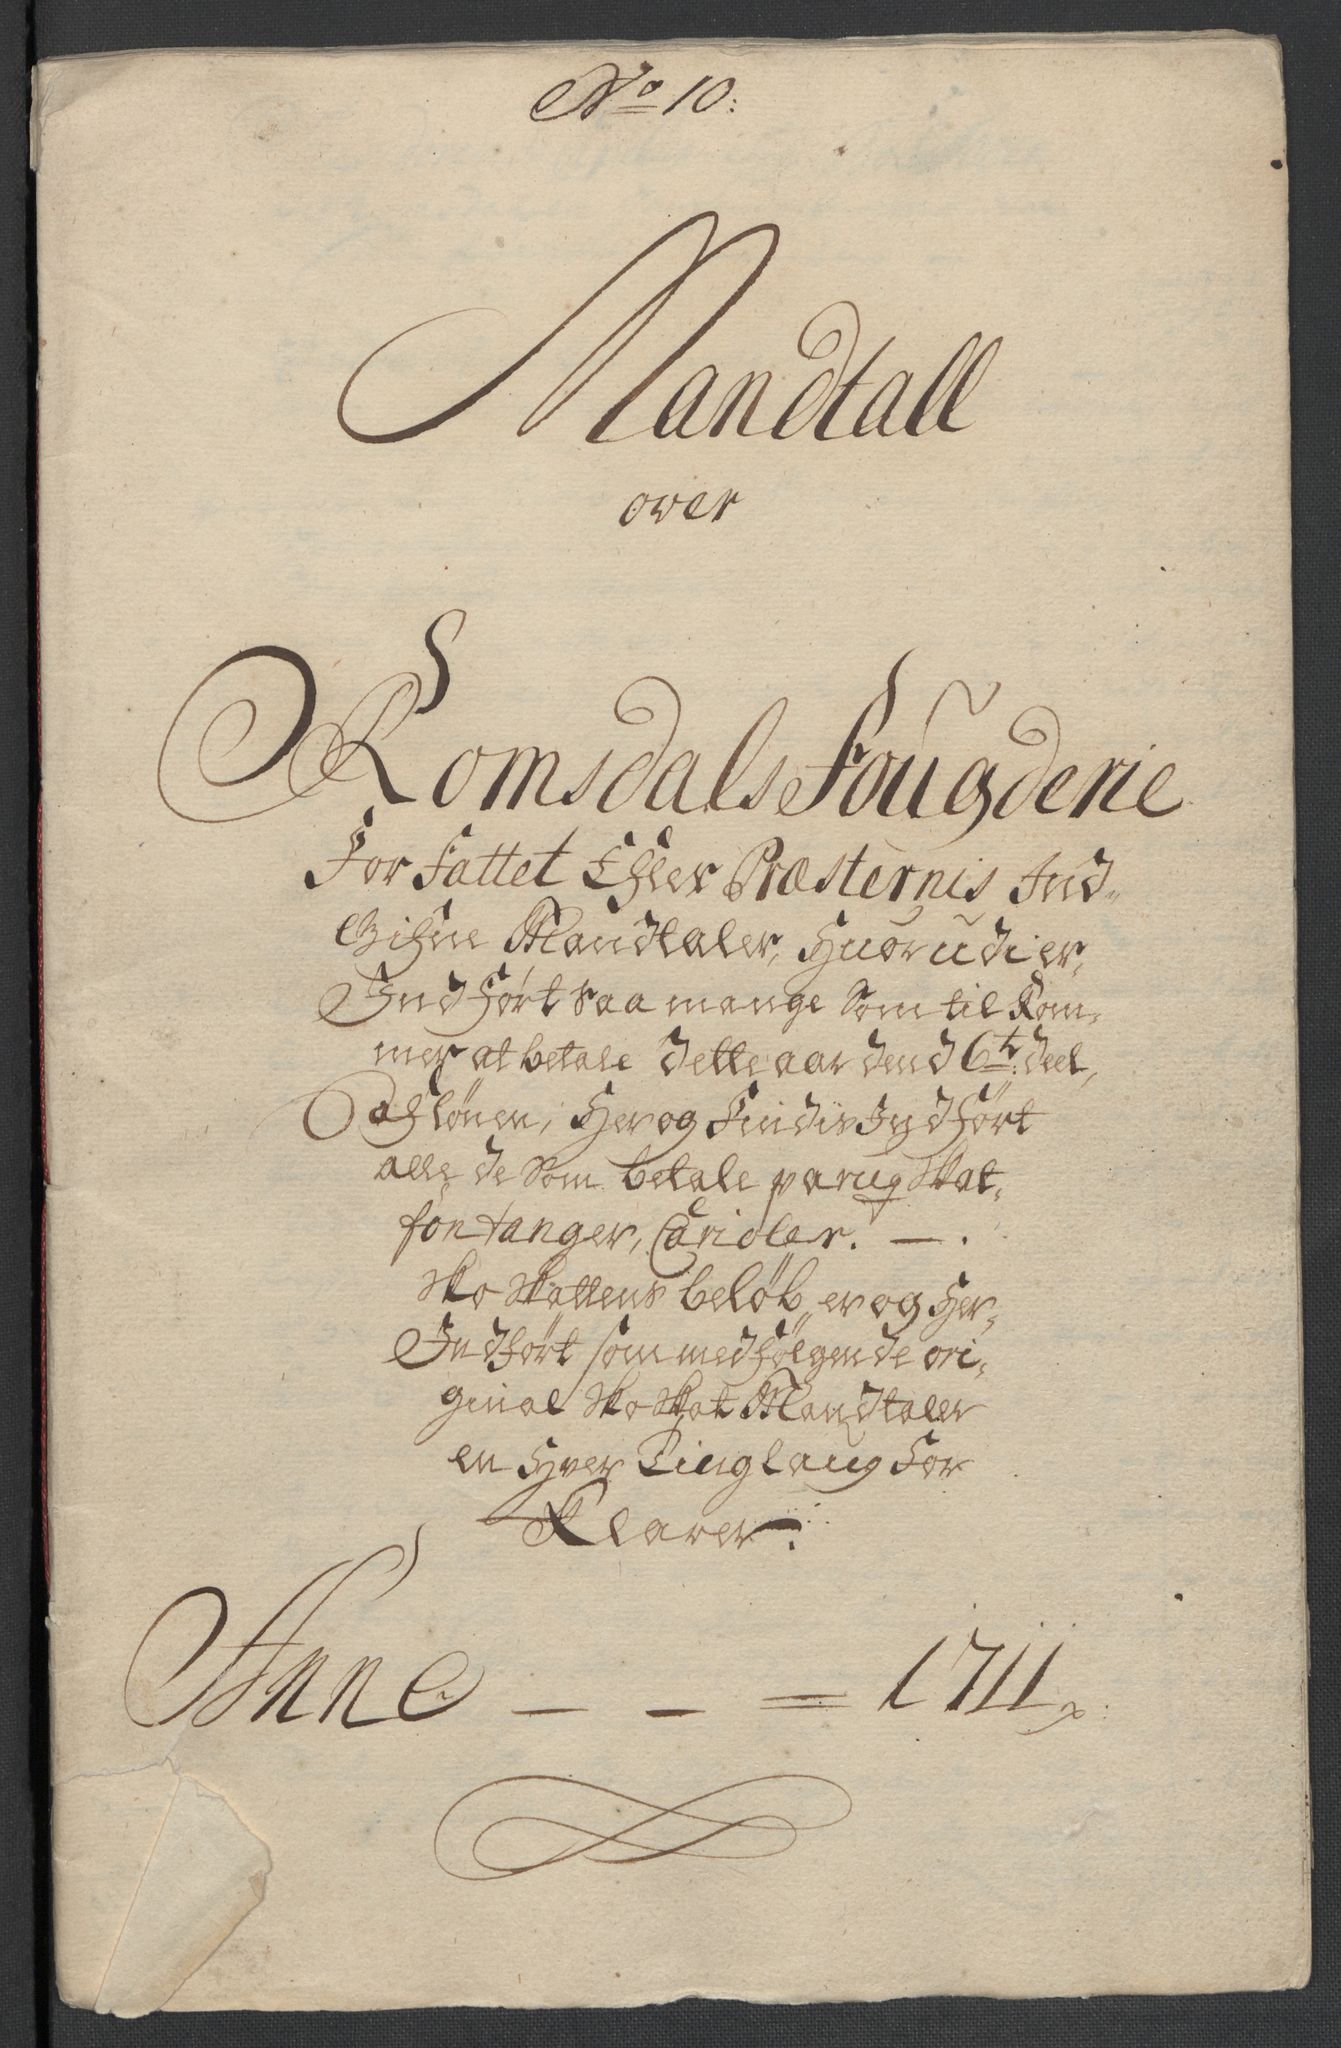 No 10:
Mandtall
over
Romsdals Fougderie
For Fattet Efter Præsternis Ind-
Gifne Mandtaler, Huorudi er,
Indført saa mange Som til Kom-
mer at betale dette aar dend 6te deel,
af lønen, Her og Findis Indført
alle de Som betale parug Skat,
fontanger, Carioler. — .
Sko Skattens beløb er og Her-
Indført som medfølgende ori-
ginal Sko Skat Mandtaler
en Hver Tinglaug For
Klarer.
Anno — — = 1711